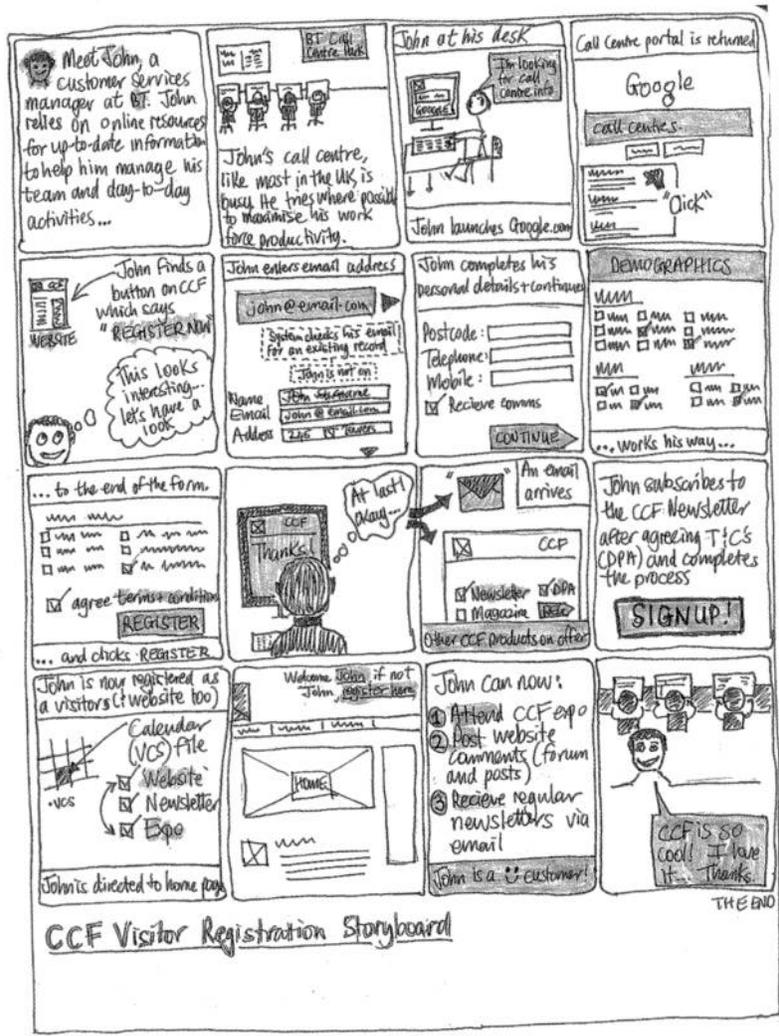 Meet John, a
customer services
manager at BT. John
relies on online resources
for up-to-date information
to help him manage his
team and day-to-day
activities...
BT Call
Centre Park
John's call centre,
like most in the UK, is
busy. He tries where possible
to maximise his work
force productivity.
John at his desk
I'm looking
for call
centre info
GOOGLE
John launches Google.com
Call Centre portal is returned
Google
call centres
"Click"
John finds a
button on CCF
which says
"REGISTER NOW"
CCF
WEBSITE
This looks
interesting...
lets have a
look
John enters email address
john@email.com
System checks his email
for an existing record
John is not on
Name
Email john@email.com
Address 245 BT Towers
John completes his
personal details + continues
Postcode:
Telephone:
Mobile:
Recieve comms
CONTINUE
DEMOGRAPHICS
...works his way...
... to the end of the form.
agree terms + condition
REGISTER
... and clicks REGISTER
CCF
Thanks!
At last!
okay...
An email
arrives
CCF
Newsletter DPA
Magazine
Other CCF products on offer
John subscribes to
the CCF Newsletter
after agreeing T&C's
(DPA) and completes
the process
SIGNUP!
John is now registered as
a visitors (+ website too)
Calendar
(VCS) file
.vcs
Website
Newsletter
Expo
John is directed to home page
Welcome John if not
John, register here
HOME
John can now:
1 Attend CCF expo
2 Post website
comments (forum
and posts)
3 Recieve regular
newsletters via
email
John is a customer!
CCF is so
cool! I love
it... Thanks.
THE END
CCF Visitor Registration Storyboard